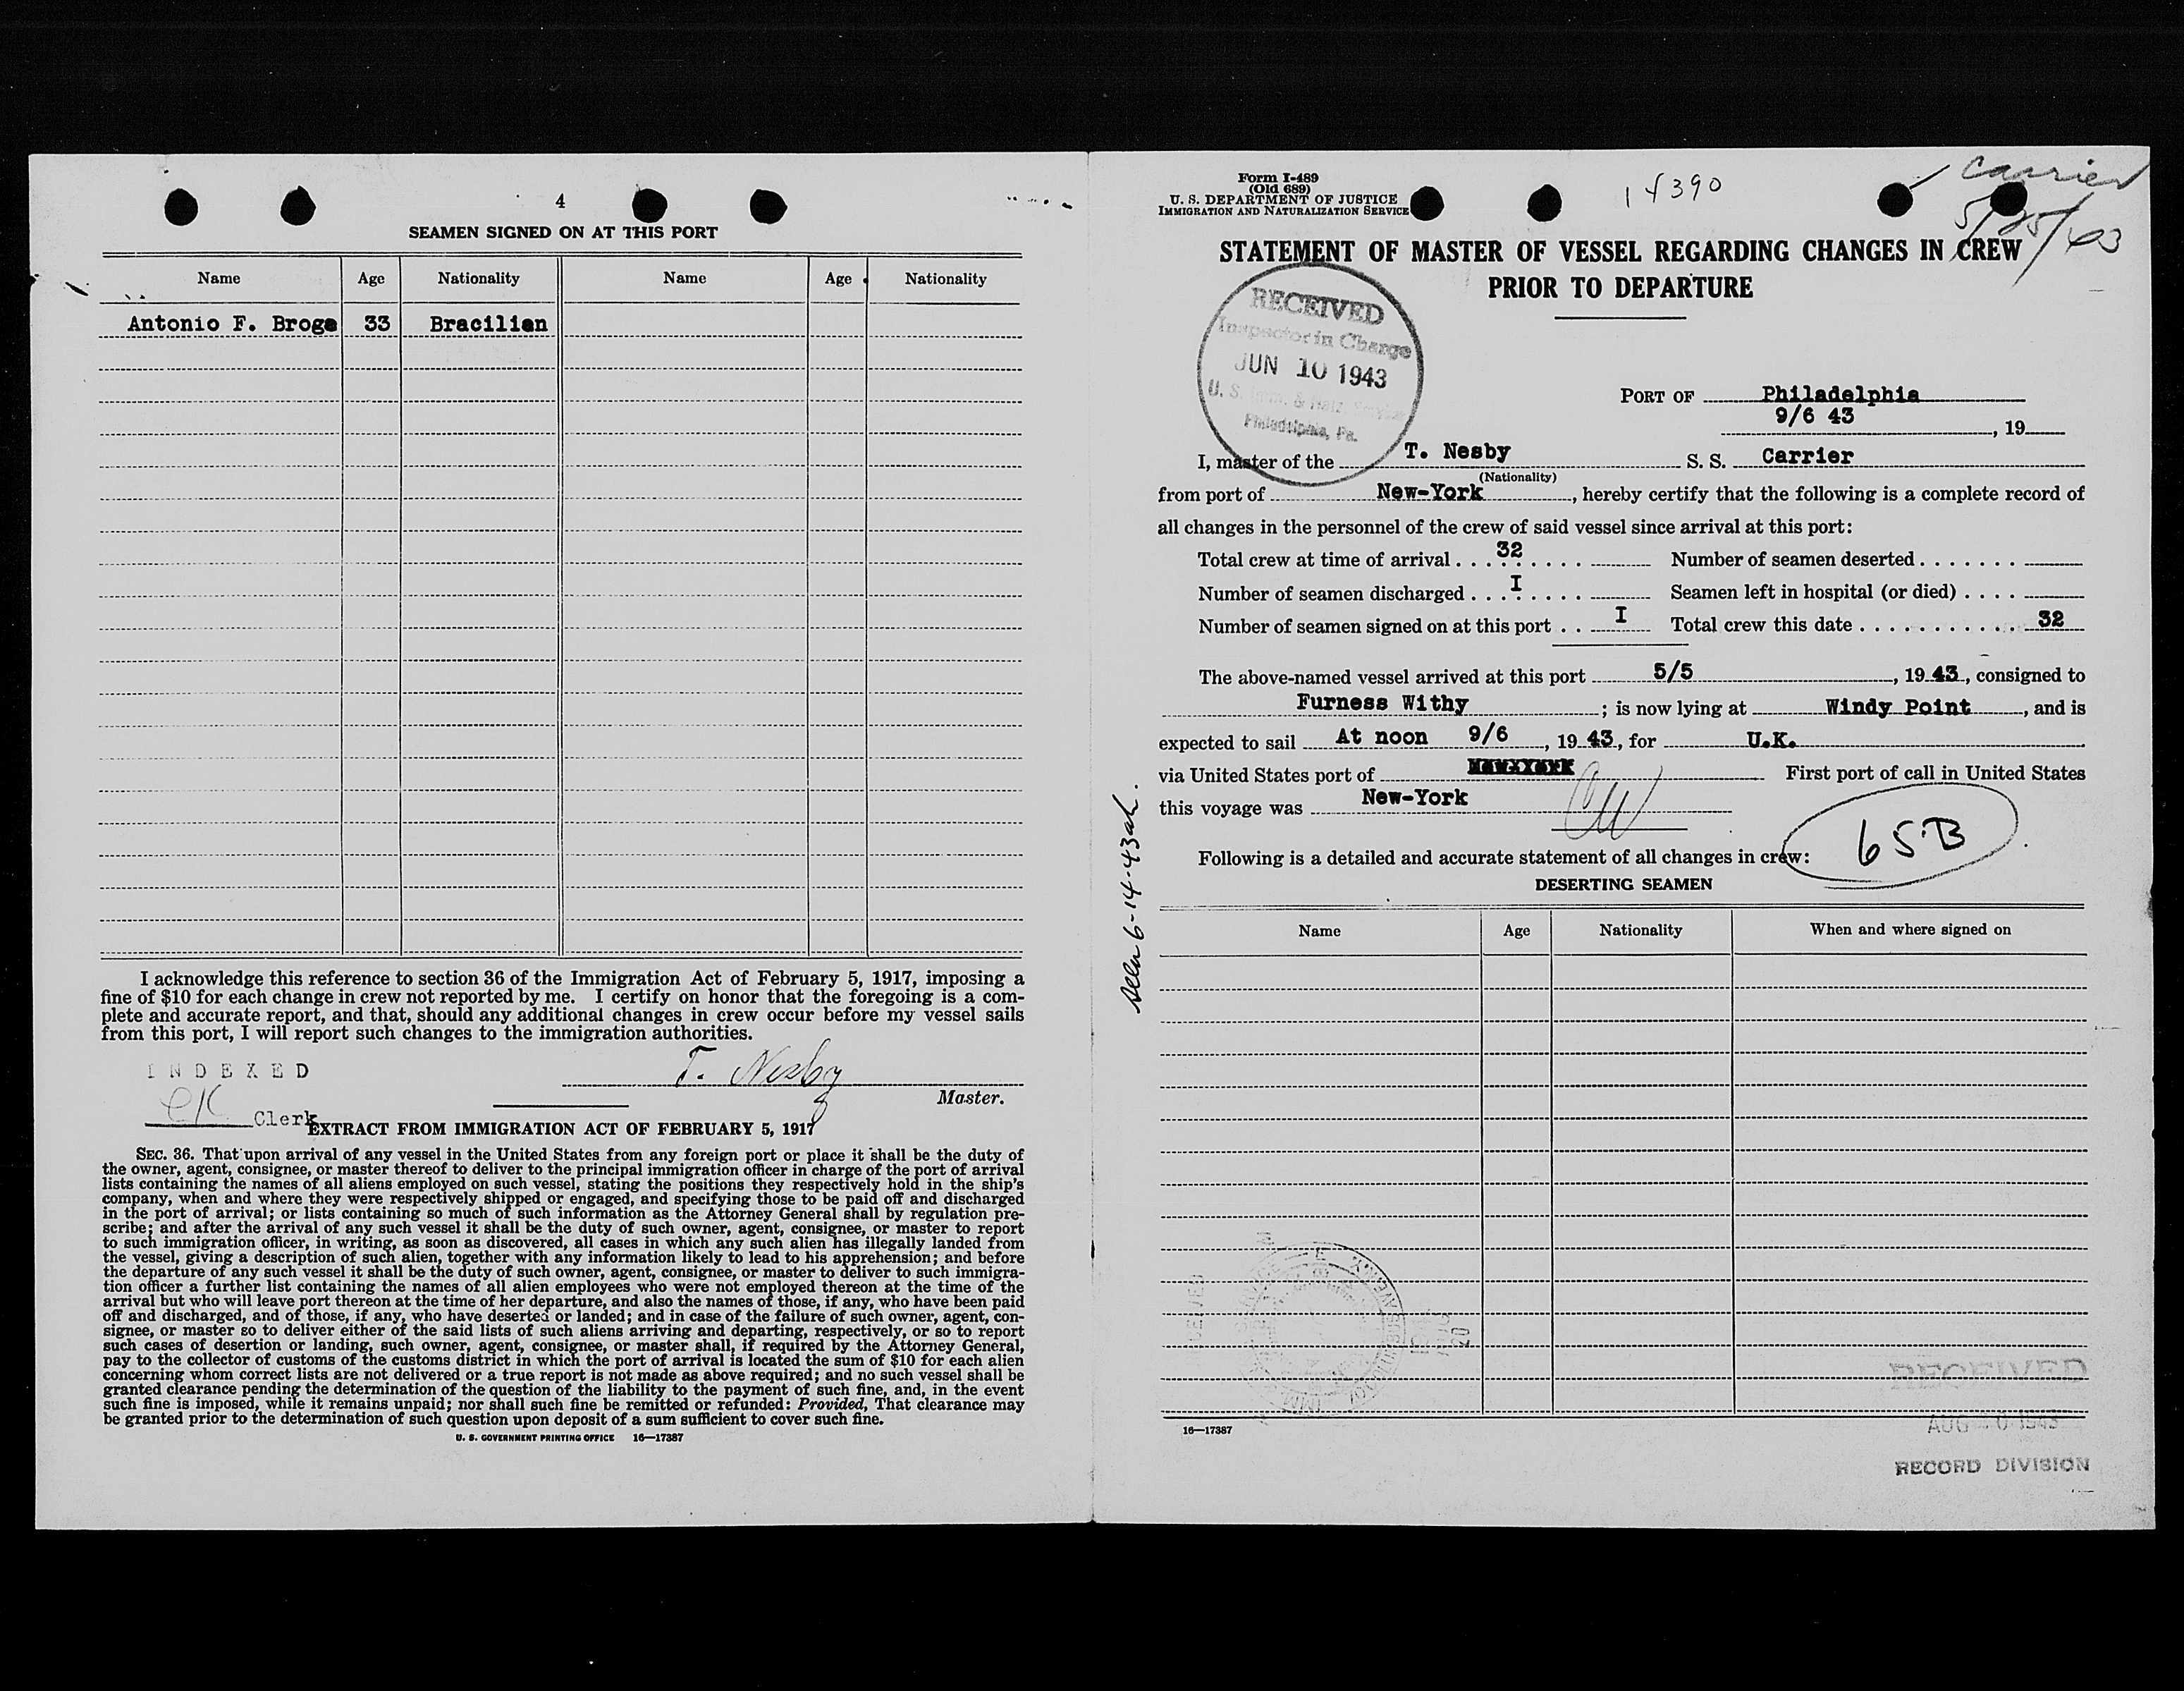 4
SEAMEN SIGNED ON AT THIS PORT
Name Age Nationality Name Age Nationality
Antonio F. Broga 33 Bracilian
I acknowledge this reference to section 36 of the Immigration Act of February 5, 1917, imposing a
fine of $10 for each change in crew not reported by me. I certify on honor that the foregoing is a com-
plete and accurate report, and that, should any additional changes in crew occur before my vessel sails
from this port, I will report such changes to the immigration authorities.
INDEXED
T. Nesby
Master.
CK Clerk
EXTRACT FROM IMMIGRATION ACT OF FEBRUARY 5, 1917
SEC. 36. That upon arrival of any vessel in the United States from any foreign port or place it shall be the duty of
the owner, agent, consignee, or master thereof to deliver to the principal immigration officer in charge of the port of arrival
lists containing the names of all aliens employed on such vessel, stating the positions they respectively hold in the ship's
company, when and where they were respectively shipped or engaged, and specifying those to be paid off and discharged
in the port of arrival; or lists containing so much of such information as the Attorney General shall by regulation pre-
scribe; and after the arrival of any such vessel it shall be the duty of such owner, agent, consignee, or master to report
to such immigration officer, in writing, as soon as discovered, all cases in which any such alien has illegally landed from
the vessel, giving a description of such alien, together with any information likely to lead to his apprehension; and before
the departure of any such vessel it shall be the duty of such owner, agent, consignee, or master to deliver to such immigra-
tion officer a further list containing the names of all alien employees who were not employed thereon at the time of the
arrival but who will leave port thereon at the time of her departure, and also the names of those, if any, who have been paid
off and discharged, and of those, if any, who have deserted or landed; and in case of the failure of such owner, agent, con-
signee, or master so to deliver either of the said lists of such aliens arriving and departing, respectively, or so to report
such cases of desertion or landing, such owner, agent, consignee, or master shall, if required by the Attorney General,
pay to the collector of customs of the customs district in which the port of arrival is located the sum of $10 for each alien
concerning whom correct lists are not delivered or a true report is not made as above required; and no such vessel shall be
granted clearance pending the determination of the question of the liability to the payment of such fine, and, in the event
such fine is imposed, while it remains unpaid; nor shall such fine be remitted or refunded: Provided, That clearance may
be granted prior to the determination of such question upon deposit of a sum sufficient to cover such fine.
U. S. GOVERNMENT PRINTING OFFICE 16—17387
Form I-489
(Old 689)
U. S. DEPARTMENT OF JUSTICE
IMMIGRATION AND NATURALIZATION SERVICE
14390
Carrier
5/25/43
STATEMENT OF MASTER OF VESSEL REGARDING CHANGES IN CREW
PRIOR TO DEPARTURE
RECEIVED
Inspector in Charge
JUN 10 1943
Philadelphia, Pa.
PORT OF Philadelphia
9/6 43, 19
I, master of the T. Nesby S. S. Carrier
(Nationality)
from port of New-York, hereby certify that the following is a complete record of
all changes in the personnel of the crew of said vessel since arrival at this port:
Total crew at time of arrival 32 Number of seamen deserted
Number of seamen discharged I Seamen left in hospital (or died)
Number of seamen signed on at this port I Total crew this date 32
The above-named vessel arrived at this port 5/5, 19 43, consigned to
Furness Withy; is now lying at Windy Point, and is
expected to sail At noon 9/6, 19 43, for U.K.
via United States port of First port of call in United States
this voyage was New-York
65B
Following is a detailed and accurate statement of all changes in crew:
DESERTING SEAMEN
Name Age Nationality When and where signed on
16—17387
RECEIVED
RECORD DIVISION